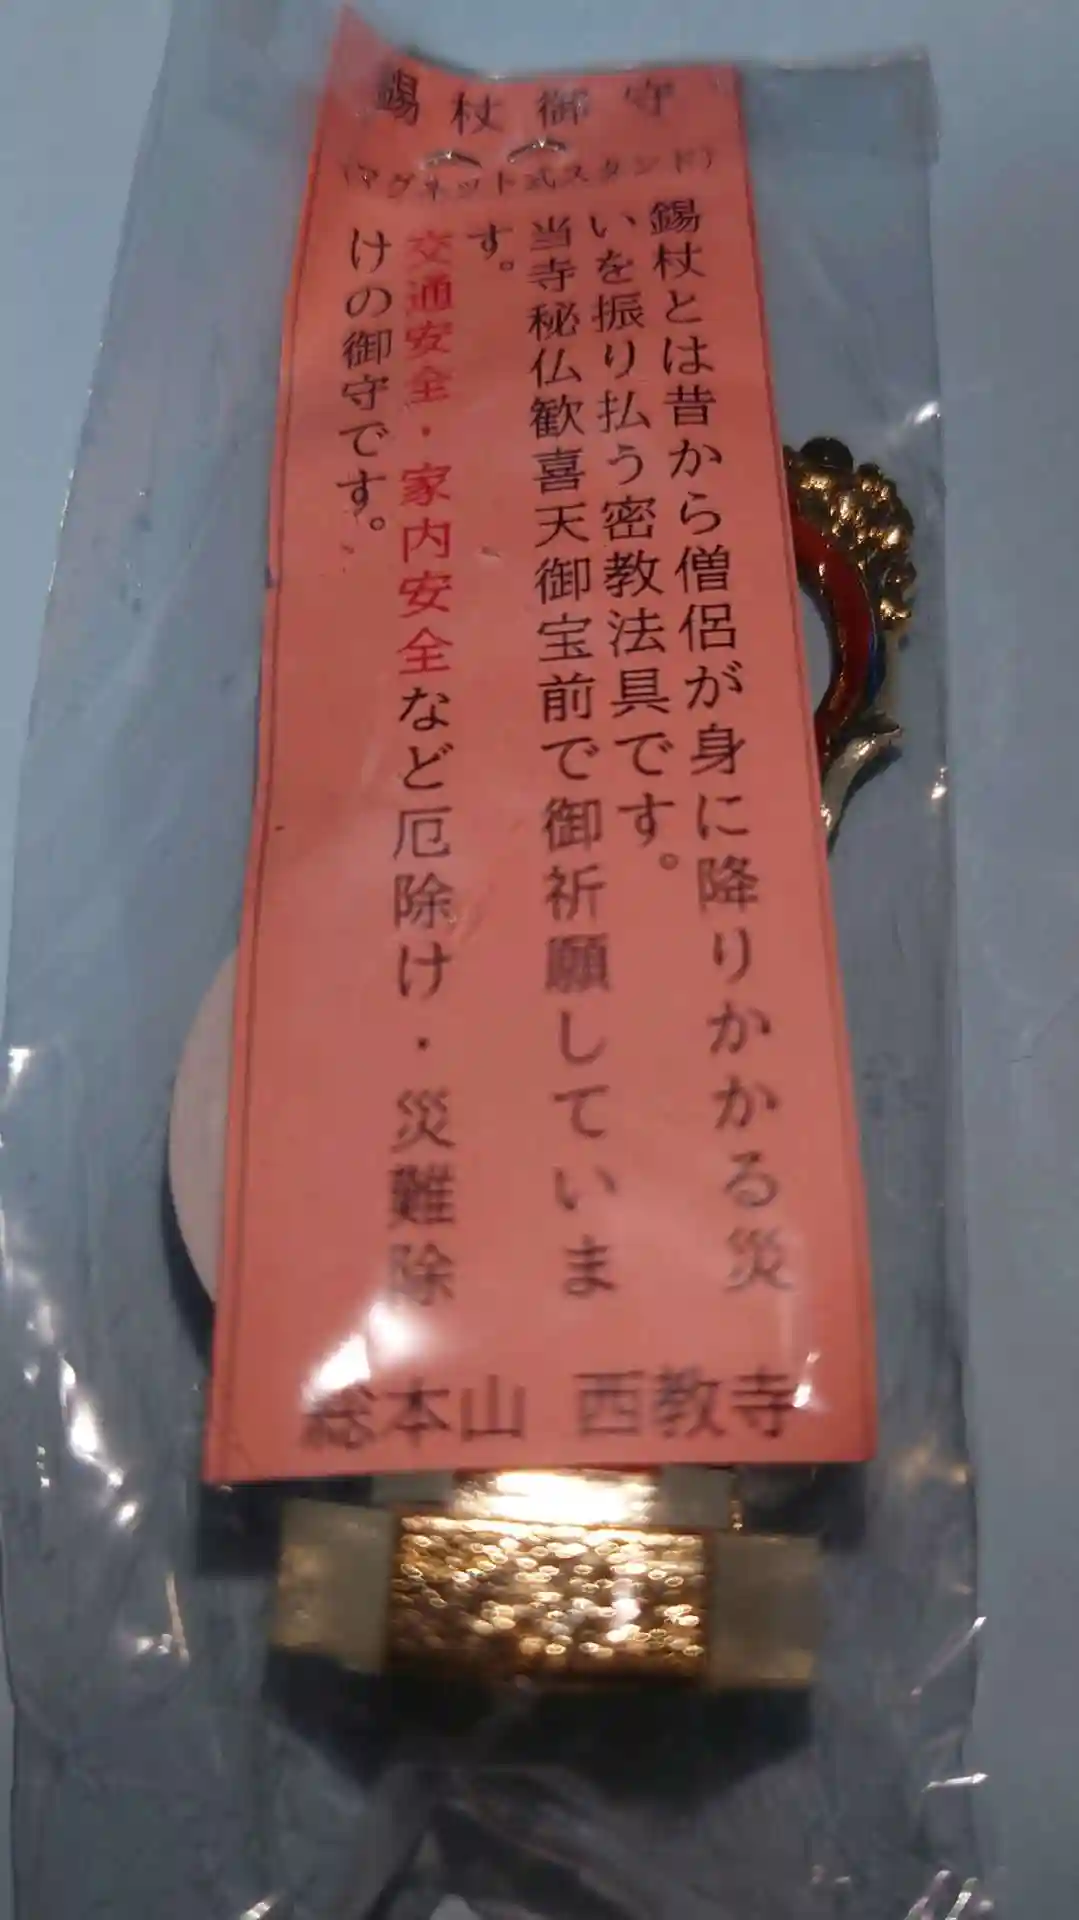 錫杖御守
(マグネット式スタンド)
錫杖とは昔から僧侶が身に降りかかる災
いを振り払う密教法具です。
当寺秘仏歓喜天御宝前で御祈願していま
す。
交通安全・家内安全など厄除け・災難除
けの御守です。
総本山 西教寺